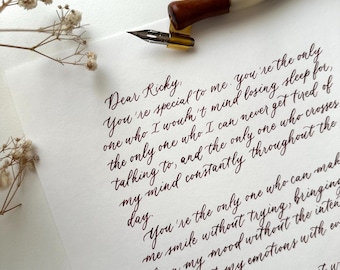 Dear Ricky,
You're special to me. You're the only
one who I woudn't mind losing sleep for,
the only one who I can never get tired of
talking to, and the only one who crosses
my mind constantly throughout the
day.
You're the only one who can mak
me smile without trying, bringing
my mood without the inten
my emotions with ev